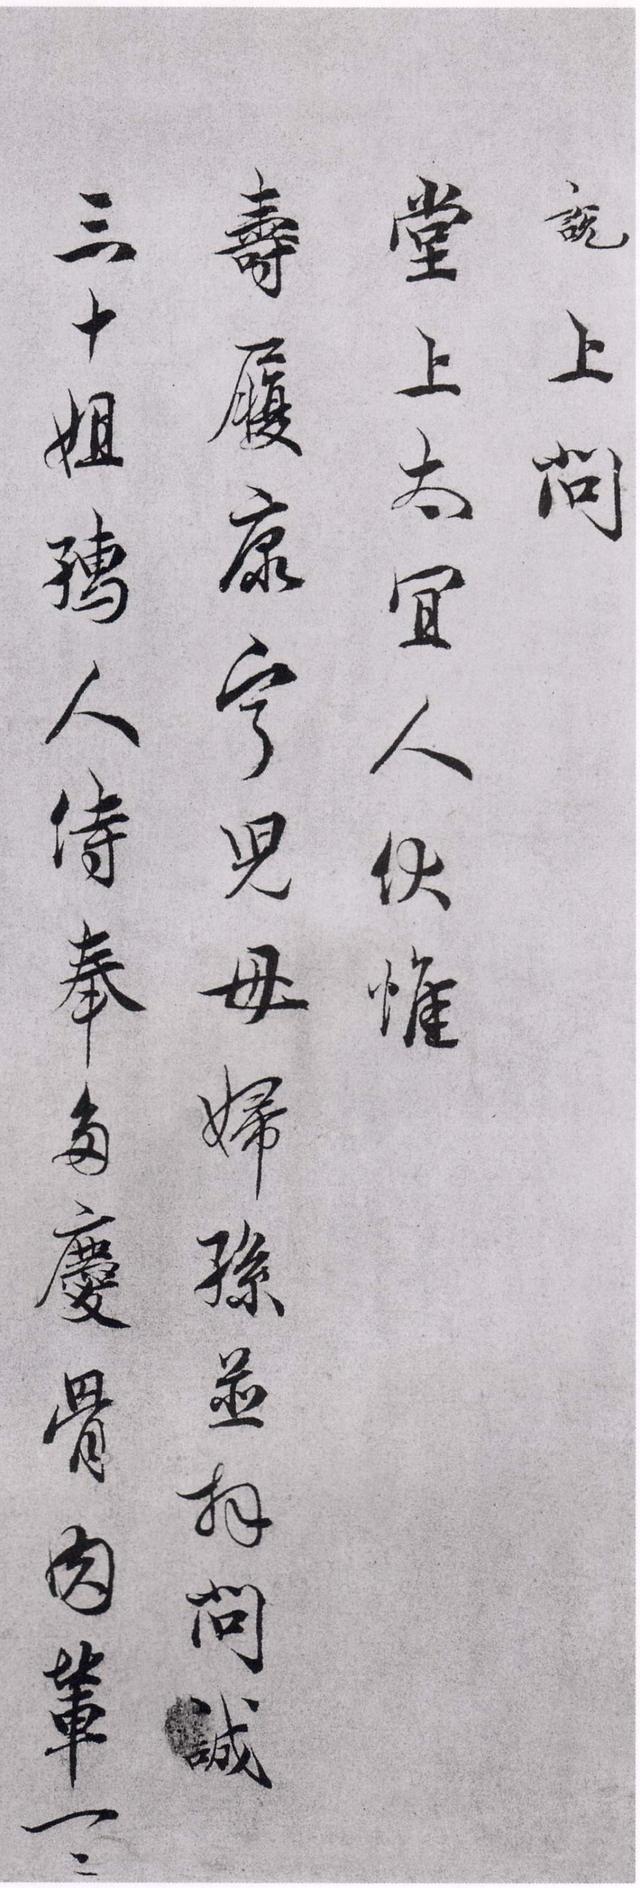 說上問
堂上太宜人伏惟
壽履康寧児母婦孫並拜問誠
三十姐孺人侍奉多慶骨肉輩一二